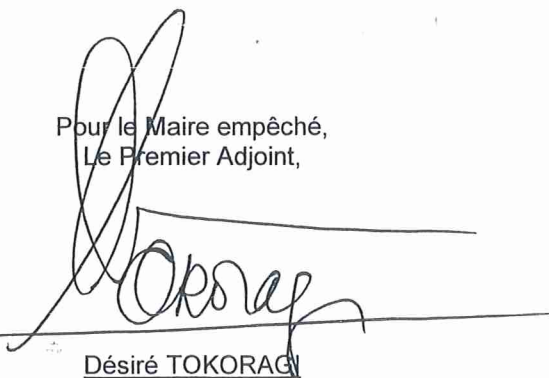 Pour le Maire empêché,
Le Premier Adjoint,
Tokorag
Désiré TOKORAGI